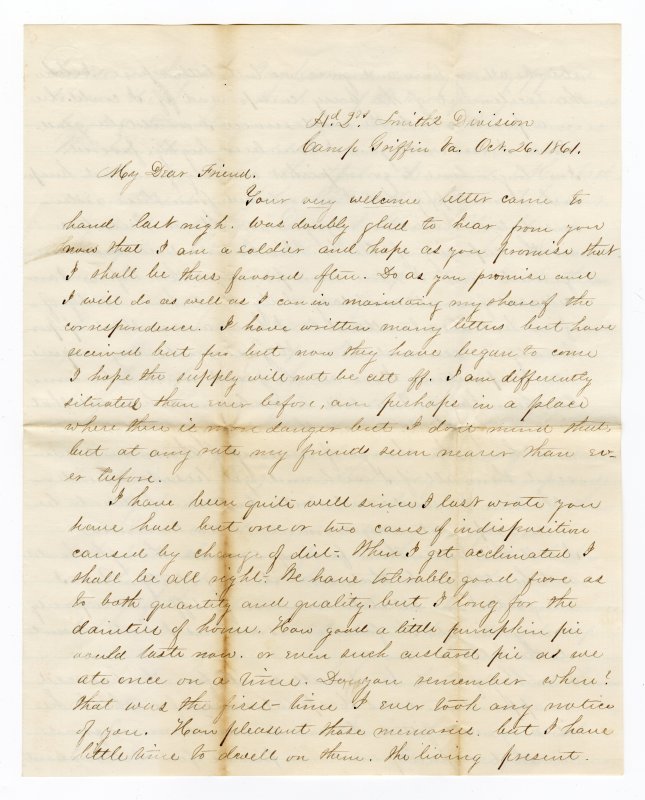 Hd. Qrs. Smith's Division
Camp Griffin Va. Oct. 26. 1861.
My Dear Friend.
Your very welcome letter came to
hand last nigh. was doubly glad to hear from you
now that I am a soldier and hope as you promise that
I shall be thus favored often. Do as you promise and
I will do as well as I can in maintaing my share of the
correspondence. I have written many letters but have
received but few but now they have began to come
I hope the supply will not be cut off. I am differently
situated than ever before, am perhaps in a place
where there is more danger but I dont mind that
but at any rate my friends seem nearer than ev-
er before.
I have been quite well since I last wrote you
have had but one or two cases of indisposition
caused by change of diet. When I get acclimated I
shall be all right. We have tolerable good fare as
to both quantity and quality. but I long for the
dainties of home. How good a little pumpkin pie
would taste now. or even such custard pie as we
ate once on a time. Do you remember where?
that was the first time I ever took any notice
of you. How pleasant those memories. but I have
little time to dwell on them. The living present.